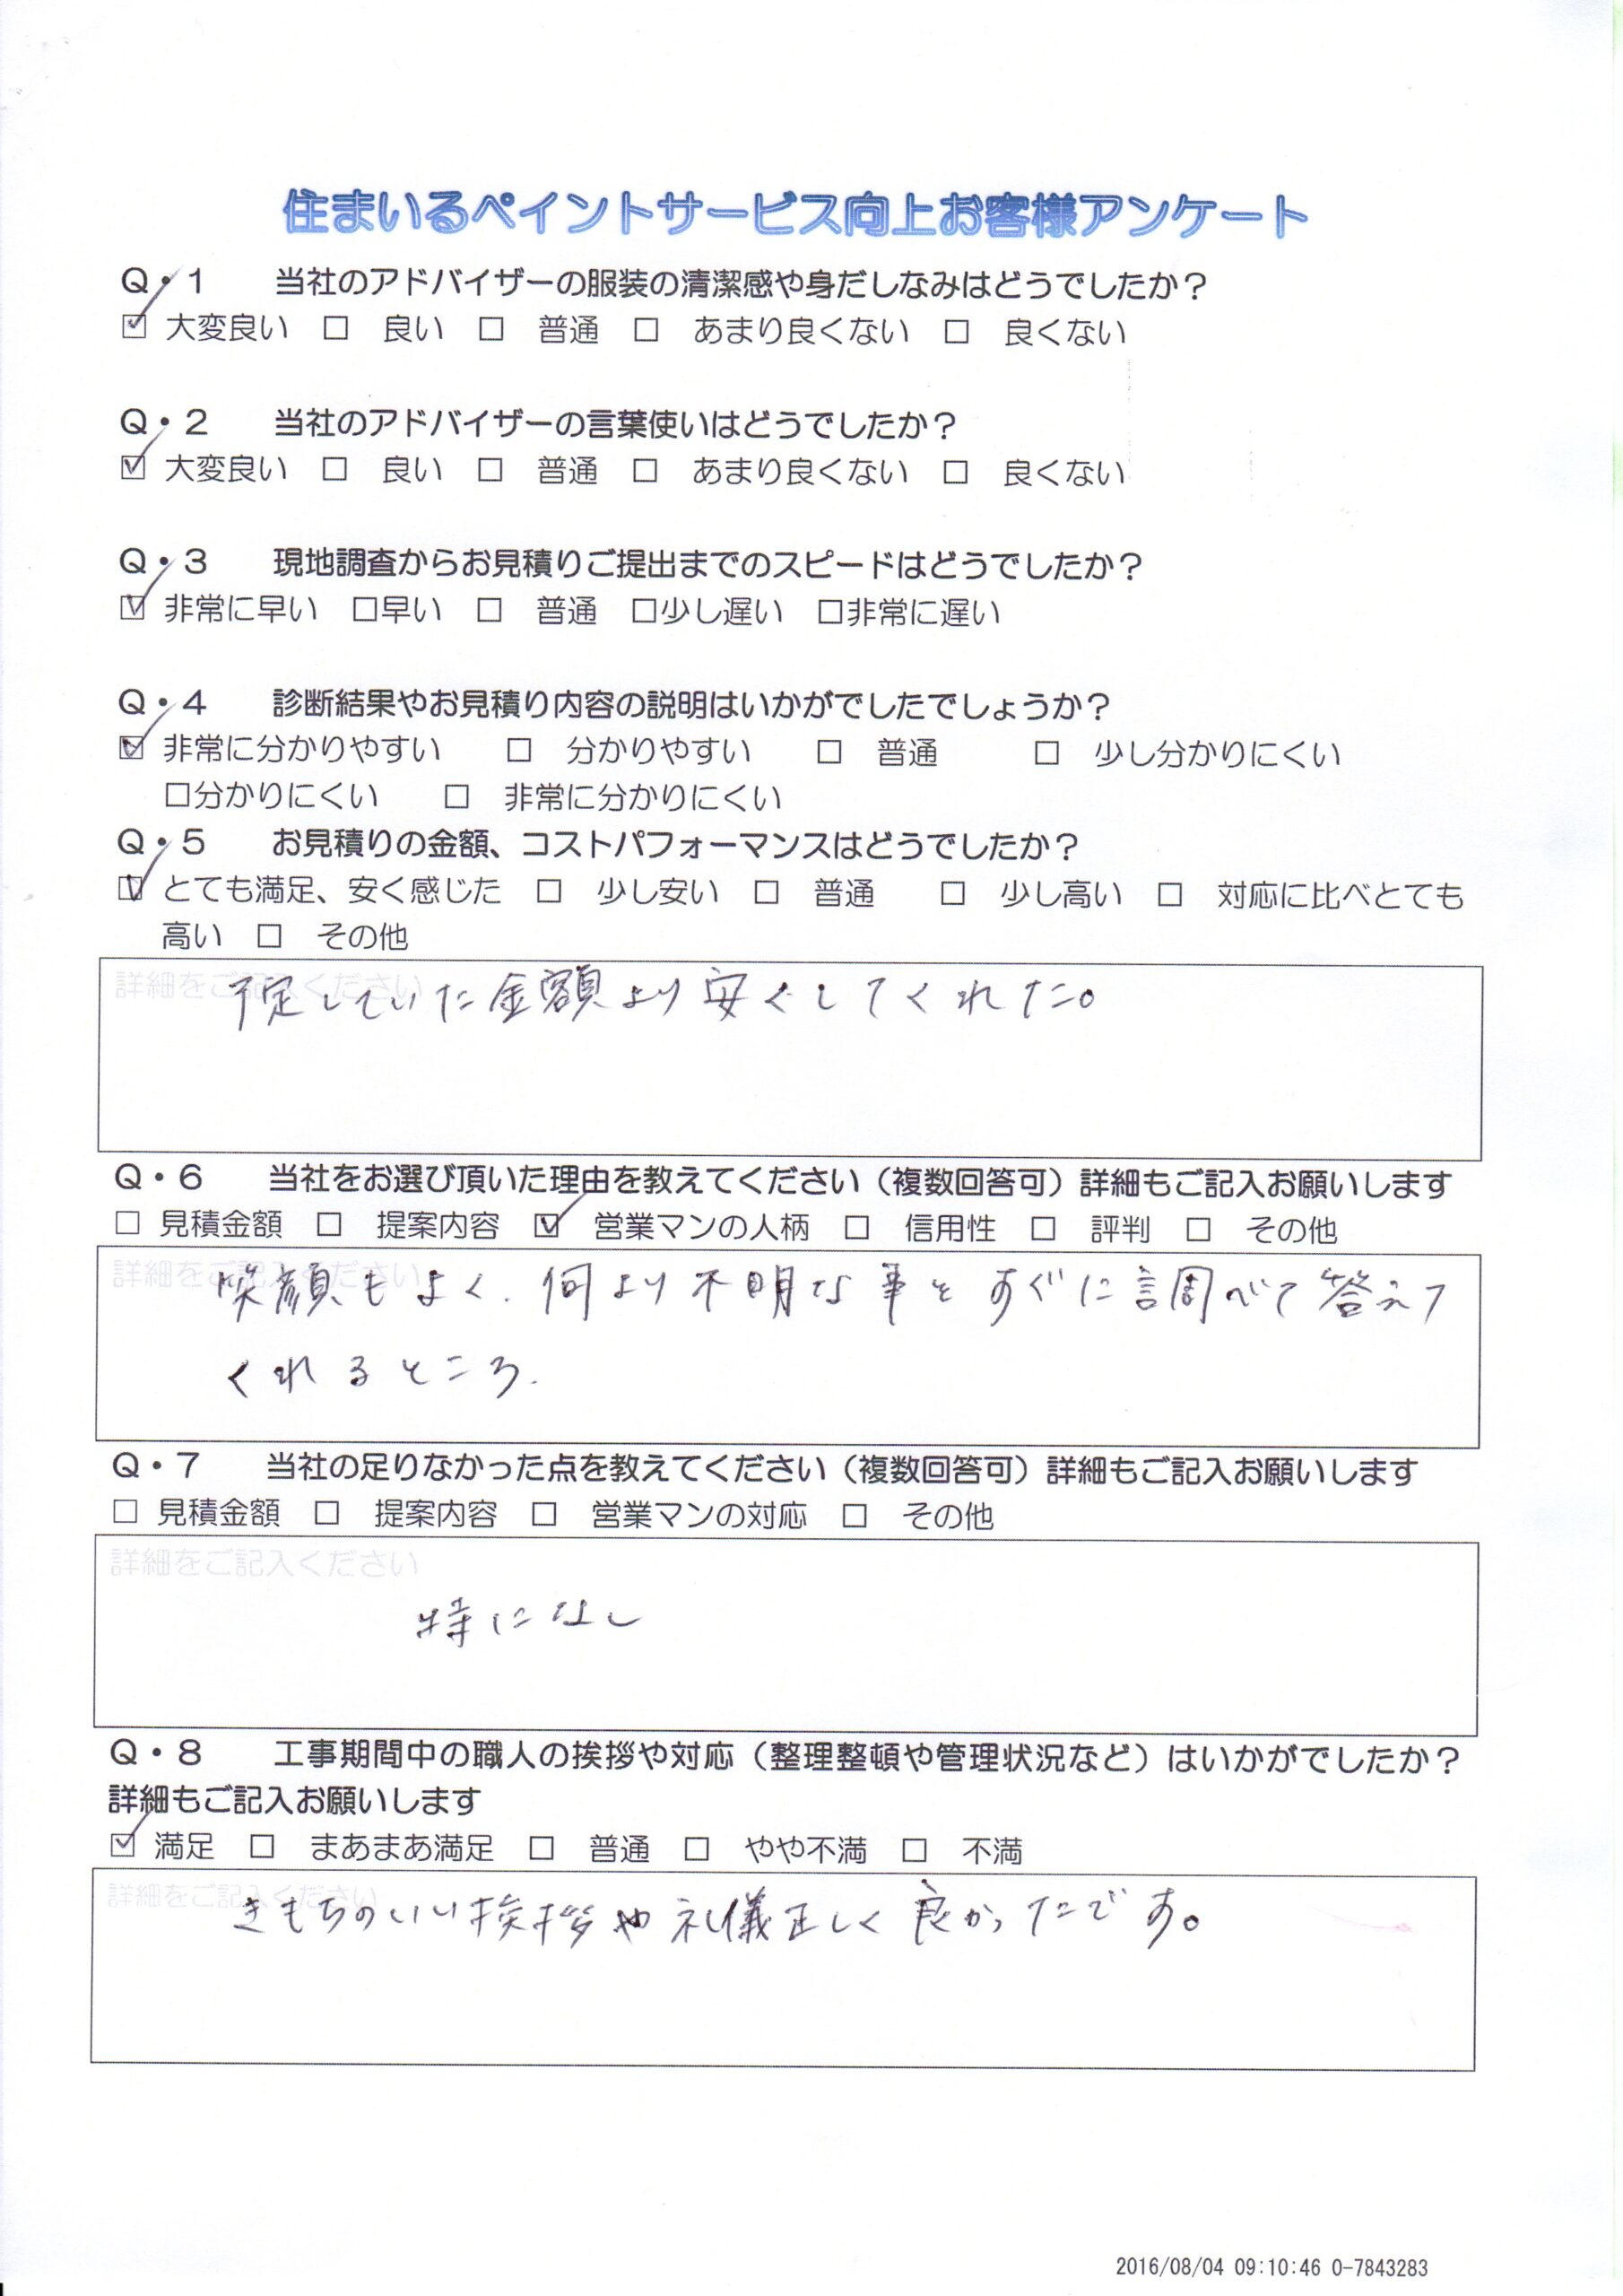 住まいるペイントサービス向上お客様アンケート
Q・1　当社のアドバイザーの服装の清潔感や身だしなみはどうでしたか？
☑ 大変良い　□　良い　□　普通　□　あまり良くない　□　良くない
Q・2　当社のアドバイザーの言葉使いはどうでしたか？
☑ 大変良い　□　良い　□　普通　□　あまり良くない　□　良くない
Q・3　現地調査からお見積りご提出までのスピードはどうでしたか？
☑ 非常に早い　□早い　□　普通　□少し遅い　□非常に遅い
Q・4　診断結果やお見積り内容の説明はいかがでしたでしょうか？
☑ 非常に分かりやすい　□　分かりやすい　□　普通　□　少し分かりにくい
□分かりにくい　□　非常に分かりにくい
Q・5　お見積りの金額、コストパフォーマンスはどうでしたか？
☑ とても満足、安く感じた　□　少し安い　□　普通　□　少し高い　□　対応に比べとても
高い　□　その他
詳細をご記入ください
予定していた金額より安くしてくれた。
Q・6　当社をお選び頂いた理由を教えてください（複数回答可）詳細もご記入お願いします
□ 見積金額　□　提案内容　☑　営業マンの人柄　□　信用性　□　評判　□　その他
詳細をご記入ください
笑顔もよく、何より不明な事をすぐに調べて答えて
くれるところ.
Q・7　当社の足りなかった点を教えてください（複数回答可）詳細もご記入お願いします
□ 見積金額　□　提案内容　□　営業マンの対応　□　その他
詳細をご記入ください
特になし
Q・8　工事期間中の職人の挨拶や対応（整理整頓や管理状況など）はいかがでしたか？
詳細もご記入お願いします
☑ 満足　□　まあまあ満足　□　普通　□　やや不満　□　不満
詳細をご記入ください
きもちのいい挨拶や礼儀正しく良かったです。
2016/08/04 09:10:46 0-7843283